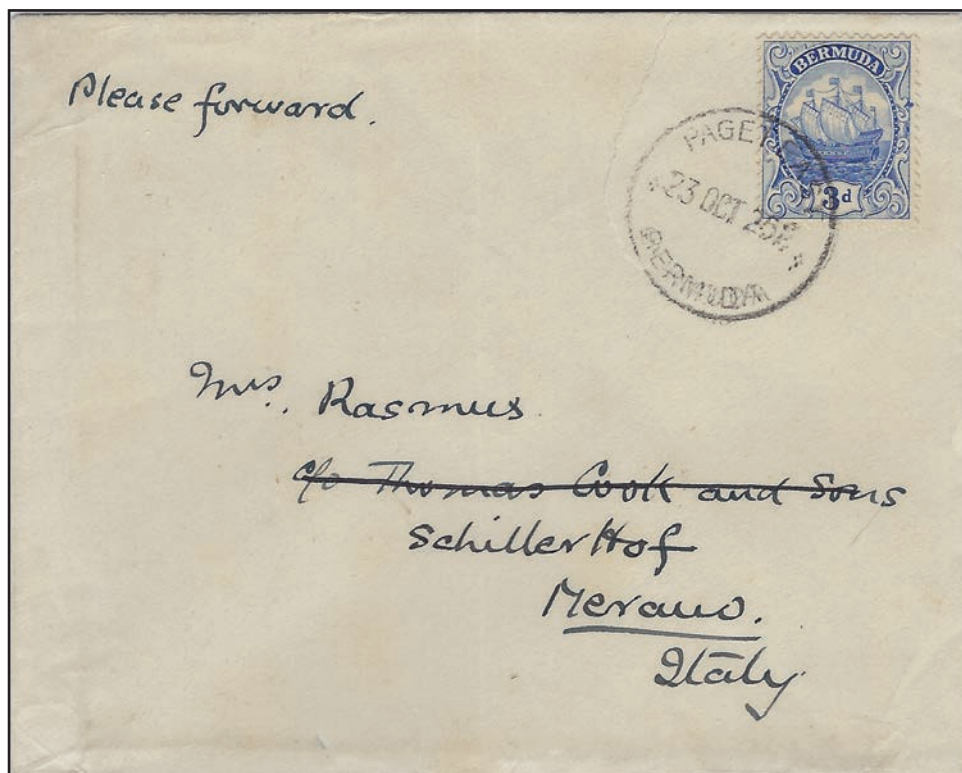 Please forward.
BERMUDA
3d
23 OCT 25
BERMUDA
Mrs. Rasmus
c/o Thomas Cook and Sons
Schiller Hof
Merano.
Italy